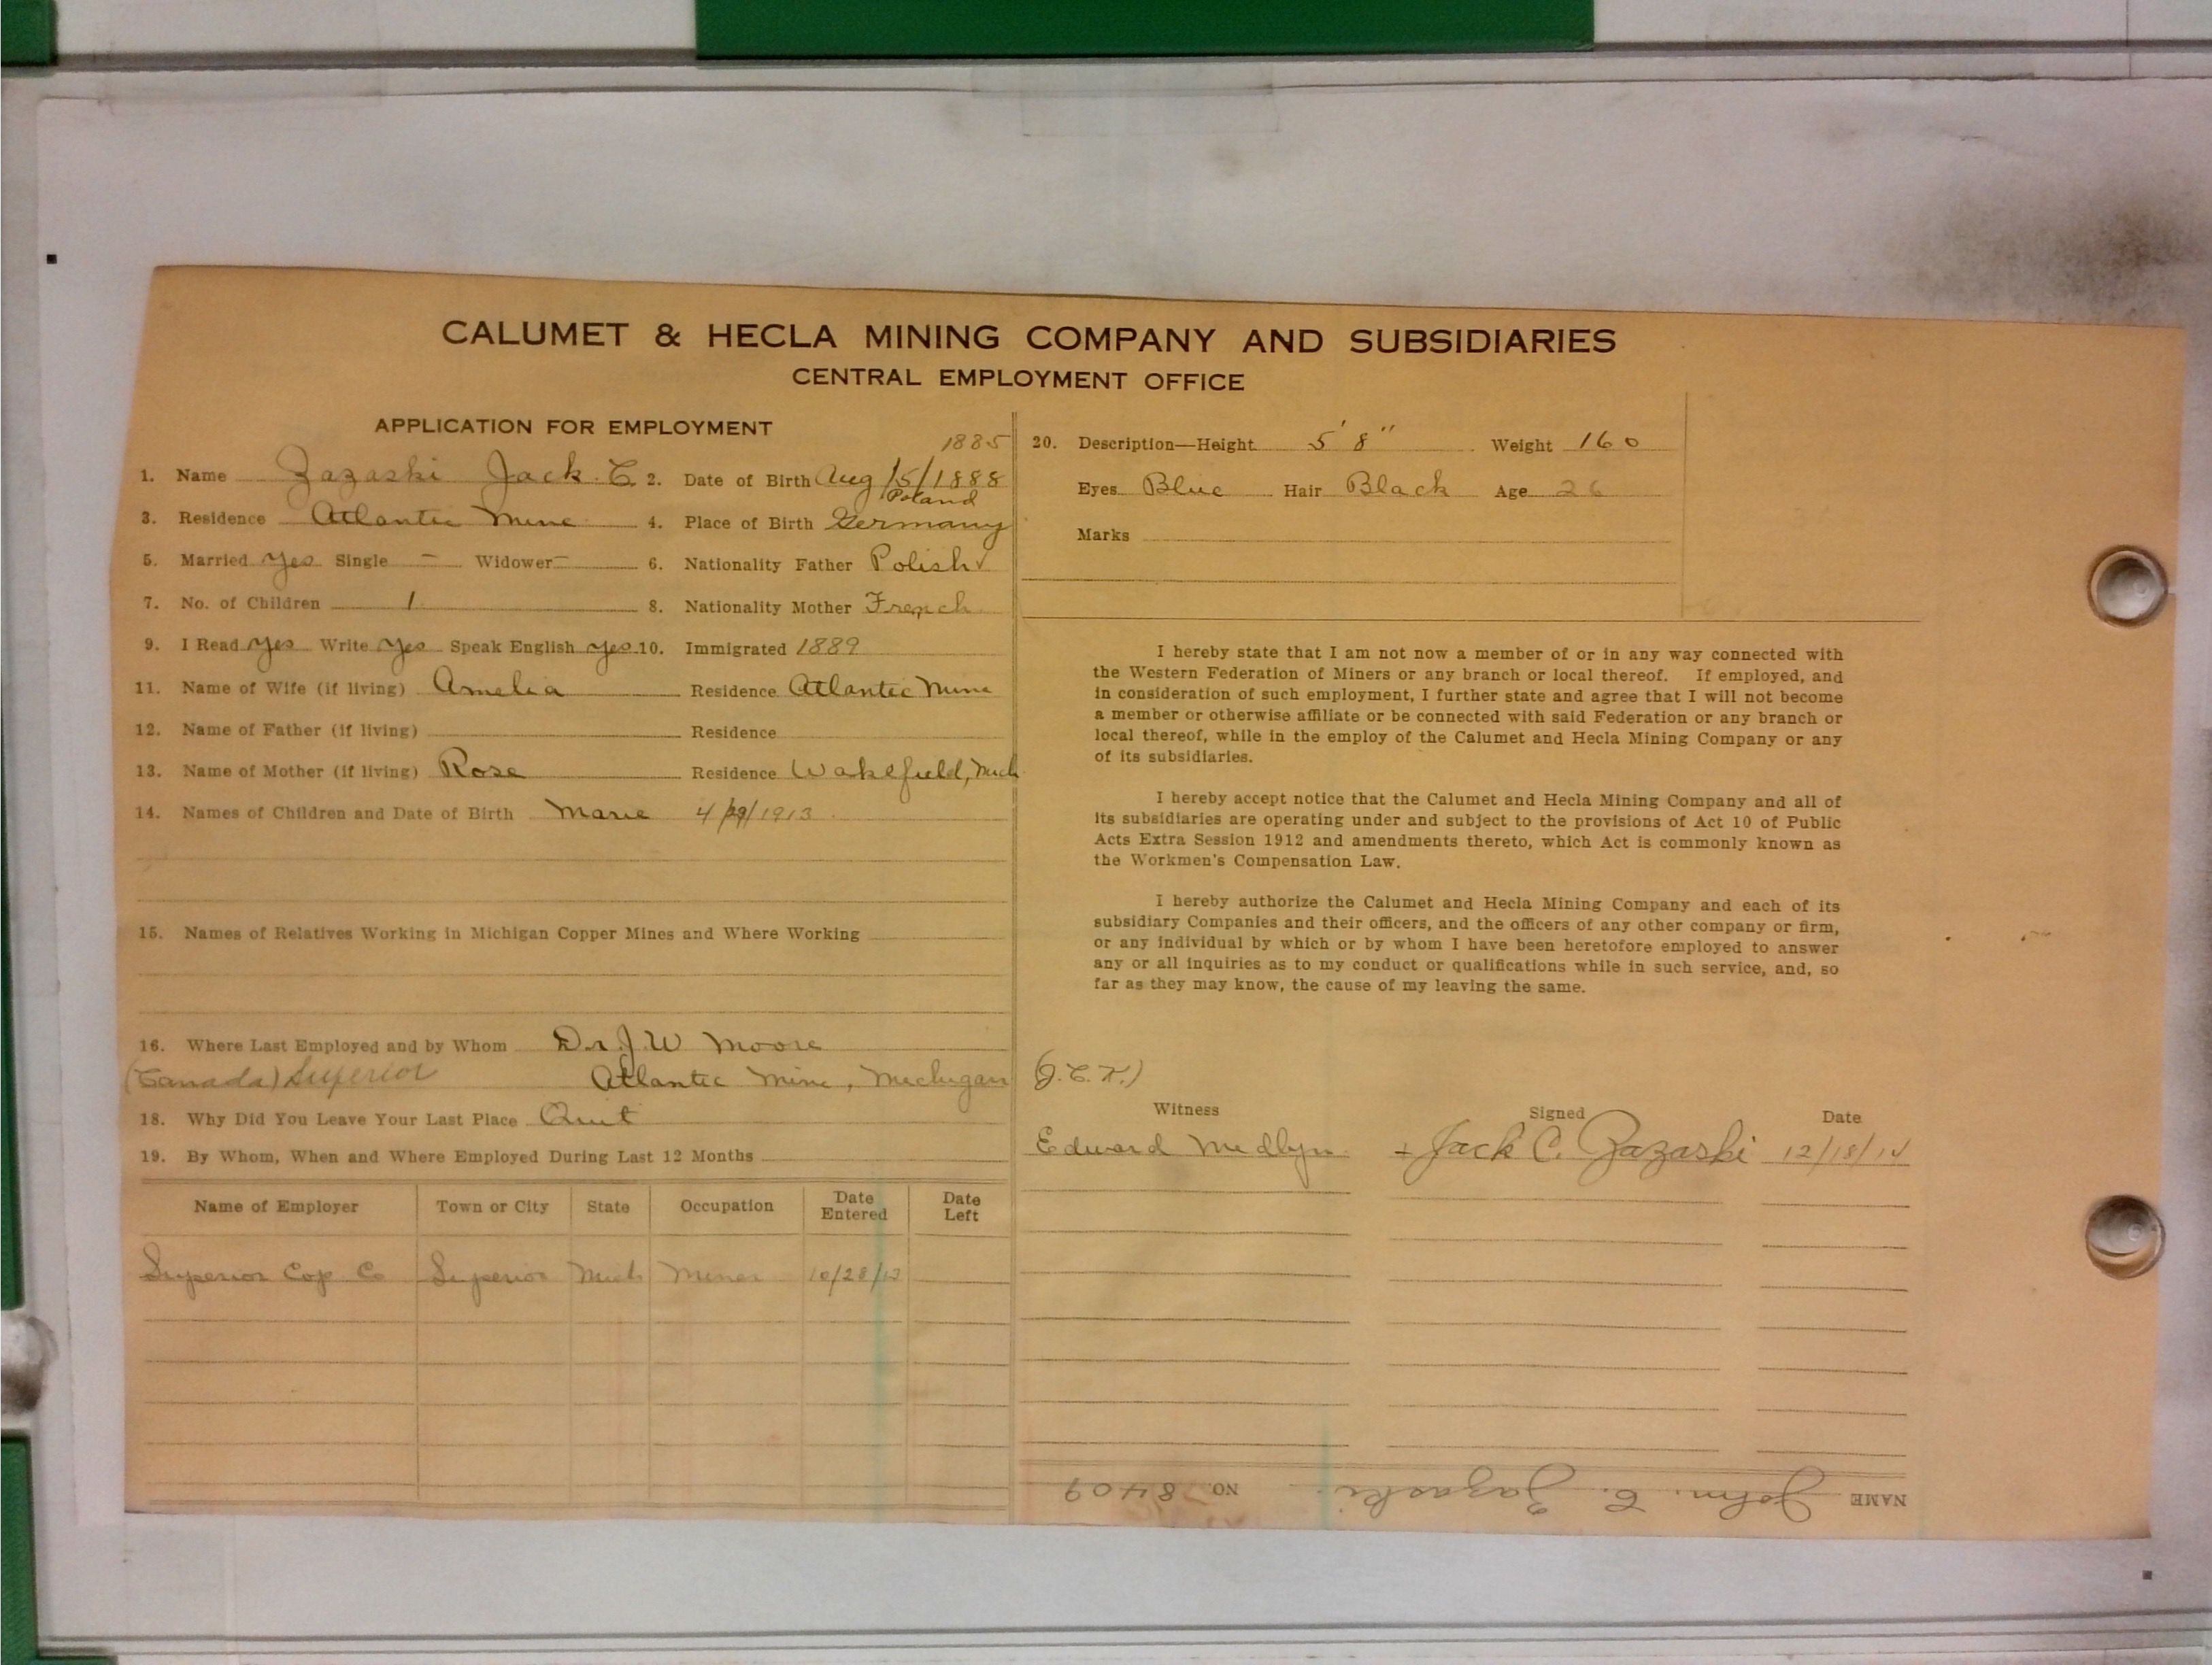 CALUMET & HECLA MINING COMPANY AND SUBSIDIARIES
CENTRAL EMPLOYMENT OFFICE
APPLICATION FOR EMPLOYMENT
1885
1. Name Zazaski Jack C. 2. Date of Birth Aug 15/1888
Poland
3. Residence Atlantic Mine 4. Place of Birth Germany
5. Married Yes Single – Widower – 6. Nationality Father Polish ✓
7. No. of Children 1 8. Nationality Mother French
9. I Read Yes Write Yes Speak English Yes 10. Immigrated 1889
11. Name of Wife (if living) Amelia Residence Atlantic Mine
12. Name of Father (if living) Residence
13. Name of Mother (if living) Rose Residence Wakefield, Mich
14. Names of Children and Date of Birth Marie 4/29/1913
15. Names of Relatives Working in Michigan Copper Mines and Where Working
16. Where Last Employed and by Whom Dr J. W Moore
(Canada) Superior Atlantic Mine, Michigan
18. Why Did You Leave Your Last Place Quit
19. By Whom, When and Where Employed During Last 12 Months
Name of Employer Town or City State Occupation Date Entered Date Left
Superior Cop Co Superior Mich Miner 10/28/13
20. Description—Height 5' 8" Weight 160
Eyes Blue Hair Black Age 26
Marks
I hereby state that I am not now a member of or in any way connected with
the Western Federation of Miners or any branch or local thereof. If employed, and
in consideration of such employment, I further state and agree that I will not become
a member or otherwise affiliate or be connected with said Federation or any branch or
local thereof, while in the employ of the Calumet and Hecla Mining Company or any
of its subsidiaries.
I hereby accept notice that the Calumet and Hecla Mining Company and all of
its subsidiaries are operating under and subject to the provisions of Act 10 of Public
Acts Extra Session 1912 and amendments thereto, which Act is commonly known as
the Workmen's Compensation Law.
I hereby authorize the Calumet and Hecla Mining Company and each of its
subsidiary Companies and their officers, and the officers of any other company or firm,
or any individual by which or by whom I have been heretofore employed to answer
any or all inquiries as to my conduct or qualifications while in such service, and, so
far as they may know, the cause of my leaving the same.
(J.C.K.)
Witness Signed Date
Edward Medlyn + Jack C. Zazaski 12/18/14
NAME John. C. Zazaski. NO. 8409